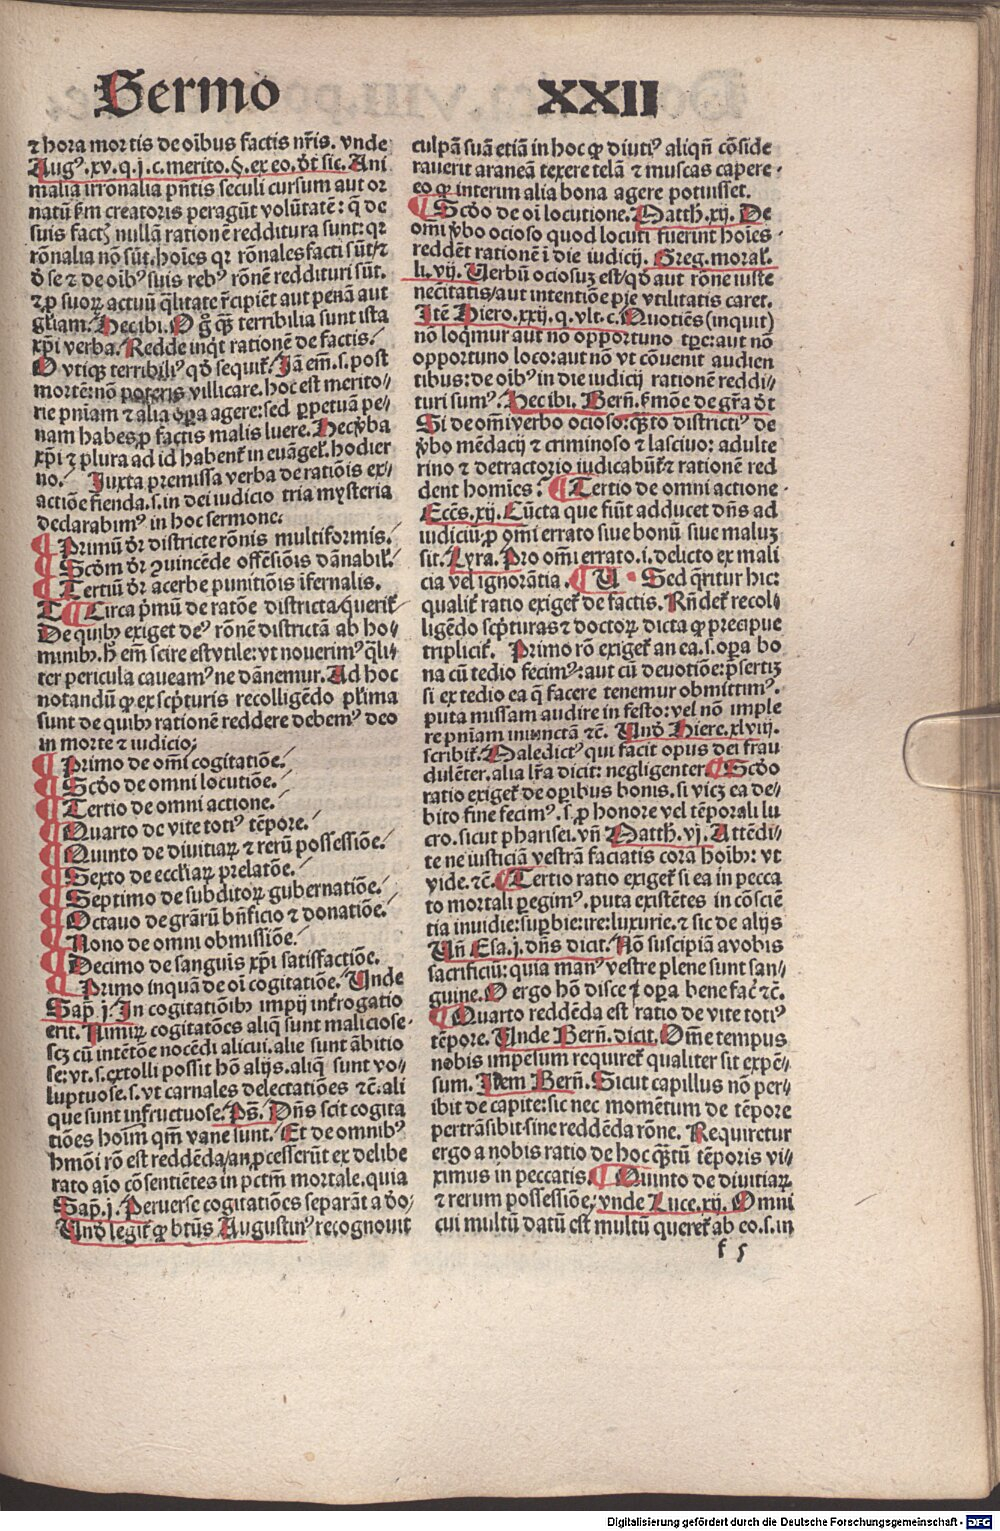 Sermo XXII
⁊ hora mortis de oībus factis nr̄is. vnde
Augꝰ.xv.q.j.c.merito.§.ex eo.dt̄ sic. Ani
malia irrōnalia pn̄tis seculi cursum aut or
natū ẜm creatoris peragūt volūtatē: qꝛ de
suis factꝭ nullā rationē redditura sunt: qꝛ
rōnalia nō sūt. hoīes qꝛ rōnales facti sūt/⁊
ꝺ se ⁊ de oībꝰ suis rebꝰ rōnē reddituri sūt.
⁊ ꝓ suoꝝ actuū q̄litate r̄cipiēt aut penā aut
gl̄iam. Hec ibi. O g̊ qꝙ̄ terribilia sunt ista
xp̄i verba. Redde inqͥt rationē de factis.
O vtiqꝫ terribiliꝰ qd̓ sequiť. Iā em̄.s.post
mortē: nō poteris villicare. hoc est merito⸗
rie pn̄iam ⁊ alia oꝑa agere: sed ꝑpetuā pe⸗
nam habes ꝓ factis malis luere. Hec v̓ba
xp̄i ⁊ plura ad id habent̄ in euāgel̄. hodier
no. Iuxta premissa verba de ratiōis ex⸗
actiōe fienda.s.in dei iudicio tria mysteria
declarabimꝰ in hoc sermone.
¶ Primū dr̄ districte rōnis multiformis.
¶ Scd̓m dr̄ ꝯuincēde offēsiōis dānabil̄.
¶ Tertiū dr̄ acerbe punitiōis īfernalis.
T ¶ Circa pͥmū de ratōe districta/queriť
De quibꝫ exiget deꝰ rōnē districtā ab ho⸗
minibꝫ. h̄ em̄ scire est vtile: vt nouerimꝰ q̄li⸗
ter pericula caueamꝰ ne dānemur. Ad hoc
notandū ꝙ ex scͥpturis recolligēdo plͥima
sunt de quibꝫ rationē reddere debemꝰ deo
in morte ⁊ iudicio.
¶ Primo de omī cogitatiōe.
¶ Scd̓o de omni locutiōe.
¶ Tertio de omni actione.
¶ Quarto de vite totiꝰ tēpore.
¶ Quinto de diuitiaꝝ ⁊ rerū possessiōe.
¶ Sexto de eccl̄iaꝝ prelatōe.
¶ Septimo de subditoꝝ gubernatiōe.
¶ Octauo de gr̄arū bn̄ficio ⁊ donatiōe.
¶ Nono de omni obmissiōe.
¶ Decimo de sanguīs xp̄i satisfactiōe.
¶ Primo inquā de oī cogitatiōe. Unde
Sap̄.j. In cogitatiōibꝫ impij int̄rogatio
erit. Nimiꝝ cogitatōes aliq̄ sunt maliciose
scꝫ cū intētōe nocēdi alicui. alie sunt ābitio
se: vt.s.extolli possit hō alijs. aliq̄ sunt vo⸗
luptuose.s.vt carnales delectatiōes ⁊c̄. ali
que sunt infructuose. Ps̄. Dn̄s scit cogita
tiōes hoīm qm̄ vane sunt. Et de omnibꝰ
hmōi rō est reddēda/an ꝓcesserūt ex delibe
rato aīo cōsentiētes in pctm̄ mortale. quia
Sap̄.j. Peruerse cogitatiōes separāt a do⸗
Und̓ legiť ꝙ btūs Augustinꝰ recognouit
culpā suā etiā in hoc ꝙ diutiꝰ aliqn̄ cōside
rauerit araneā texere telā ⁊ muscas capere
eo ꝙ interim alia bona agere potuisset.
¶ Scd̓o de oī locutione. Matth.xij. De
omi v̓bo ocioso quod locuti fuerint hoīes
reddēt rationē ī die iudicij. Greg.moral̄.
li.vij. Uerbū ociosuꝫ est/qd̓ aut rōne iuste
necītatis/aut intentiōe pie vtilitatis caret.
Itē Hiero.xxij.q.vlt.c. Quotiēs (inquit)
nō loqͥmur aut nō opportuno tꝑe: aut nō
opportuno loco: aut nō vt cōuenit audien
tibus: de oībꝰ in die iudicij rationē reddi⸗
turi sumꝰ. Hec ibi. Bern̄. ẜmōe de gr̄a dt̄
Si de omī verbo ocioso: qꝙ̄to districtiꝰ de
v̓bo mēdacij ⁊ criminoso ⁊ lasciuo: adulte
rino ⁊ detractorio iudicabūť ⁊ rationē red
dent homīes? ¶ Tertio de omni actione
Eccēs.xij. Cūcta que fiūt adducet dn̄s ad
iudiciū: ꝓ omī errato siue bonū siue maluꝫ
sit. Lyra. Pro omī errato.i.delicto ex mali
cia vel ignorātia. ¶ U Sed q̄ritur hic:
qualiť ratio exigeť de factis. Rn̄deť recol⸗
ligēdo scͥpturas ⁊ doctoꝝ dicta ꝙ precipue
tripliciť. Primo rō exigeť an ea.s.oꝑa bo
na cū tedio fecimꝰ: aut cū deuotiōe: p̄sertiꝫ
si ex tedio ea q̄ facere tenemur obmittimꝰ.
puta missam audire in festo: vel nō imple
re pn̄iam iniunctā ⁊c̄. Und̓ Hiere.xlviij.
scribiť. Maledictꝰ qui facit opus dei frau
dulēter. alia lr̄a dicit: negligenter. ¶ Scd̓o
ratio exigeť de oꝑibus bonis. si vicꝫ ea de⸗
bito fine fecimꝰ.s.ꝓ honore vel tēporali lu
cro. sicut pharisei. vn̄ Matth.vj. Attēdi⸗
te ne iusticiā vestrā faciatis corā hoībꝫ: vt
vide.⁊c̄. ¶ Tertio ratio exigeť si ea in pecca
to mortali ꝑegimꝰ. puta existētes in cōsciē
tia inuidie: suꝑbie: ire: luxurie. ⁊ sic de alijs
Un̄ Esa.j. dn̄s dicit. Nō suscipiā a vobis
sacrificiū: quia manꝰ vestre plene sunt san⸗
guine. O ergo hō disce ꝙ oꝑa bene fac̄ ⁊c̄.
¶ Quarto reddēda est ratio de vite totiꝰ
tēpore. Unde Bern̄. dicit. Om̄e tempus
nobis impēsum requireť qualiter sit expē⸗
sum. Item Bern̄. Sicut capillus nō per⸗
ibit de capite: sic nec momētum de tēpore
pertrāsibit sine reddēda rōne. Requiretur
ergo a nobis ratio de hoc qꝙ̄tū tēporis vi⸗
ximus in peccatis. ¶ Quinto de diuitiaꝝ
⁊ rerum possessiōe. vnde Luce.xij. Omni
cui multū datū est multū quereť ab eo.s.in
f 5
Digitalisierung gefördert durch die Deutsche Forschungsgemeinschaft - DFG